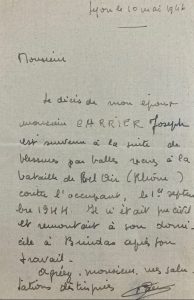 Lyon le 10 mai 1946
Monsieur
Le décès de mon époux
monsieur CARRIER Joseph
est survenu à la suite de
blessures par balles reçues à la
bataille de Bel Air (Rhône)
contre l'occupant, le 1er septem
bre 1944. Il n'était pas
et remontait à son domi
cile à Brindas après son
travail.
Agréez, monsieur, mes salu
tations distinguées